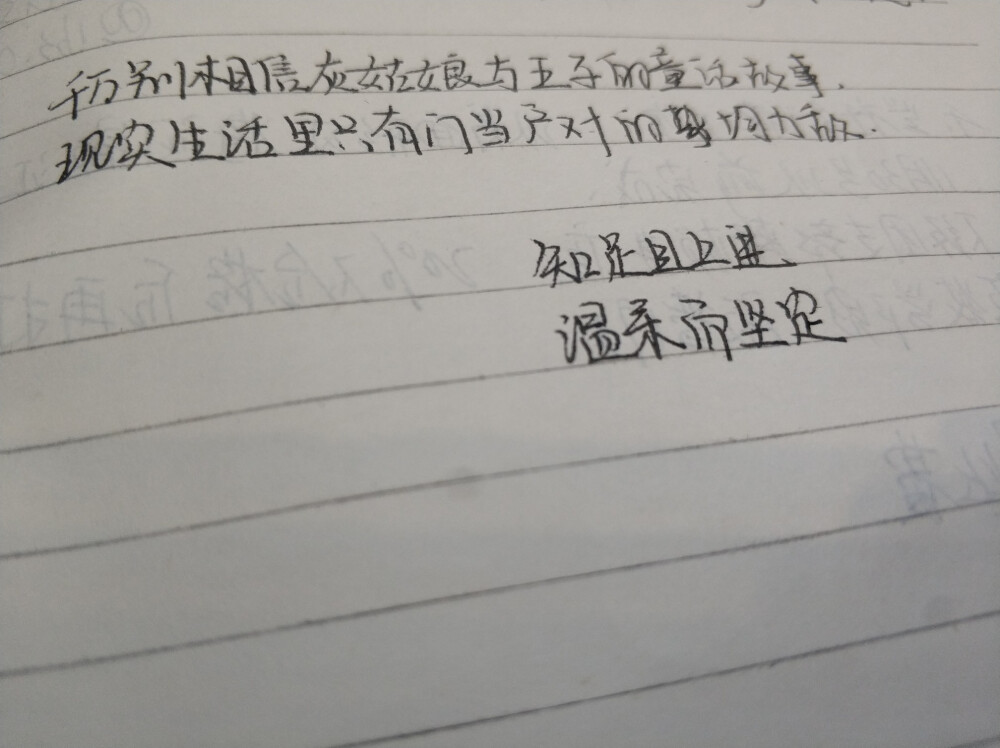 千万别相信灰姑娘与王子的童话故事.
现实生活里只有门当户对的势均力敌.
知足且上进、
温柔而坚定